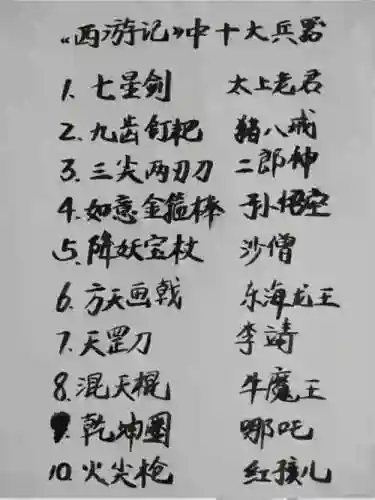 《西游记》中十大兵器
1. 七星剑 太上老君
2. 九齿钉耙 猪八戒
3. 三尖两刃刀 二郎神
4. 如意金箍棒 孙悟空
5. 降妖宝杖 沙僧
6. 方天画戟 东海龙王
7. 天罡刀 李靖
8. 混天棍 牛魔王
9. 乾坤圈 哪吒
10. 火尖枪 红孩儿